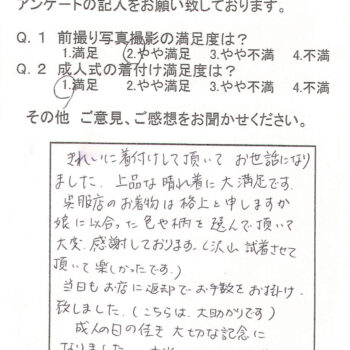 アンケートの記入をお願い致しております。
Q.1 前撮り写真撮影の満足度は？
1.満足 2.やや満足 3.やや不満 4.不満
Q.2 成人式の着付け満足度は？
1.満足 2.やや満足 3.やや不満 4.不満
その他 ご意見、ご感想をお聞かせください。
きれいに着付けして頂いて お世話になり
ました. 上品な晴れ着に大満足です.
呉服店のお着物は格上と申しますか
娘に似合った色や柄を選んで頂いて
大変、感謝しております。(沢山試着させて
頂いて楽しかったです.)
当日もお店に返却でお手数をお掛け.
致しました.(こちらは、大助かりです)
成人の日の佳き 大切な記念に
なりました.